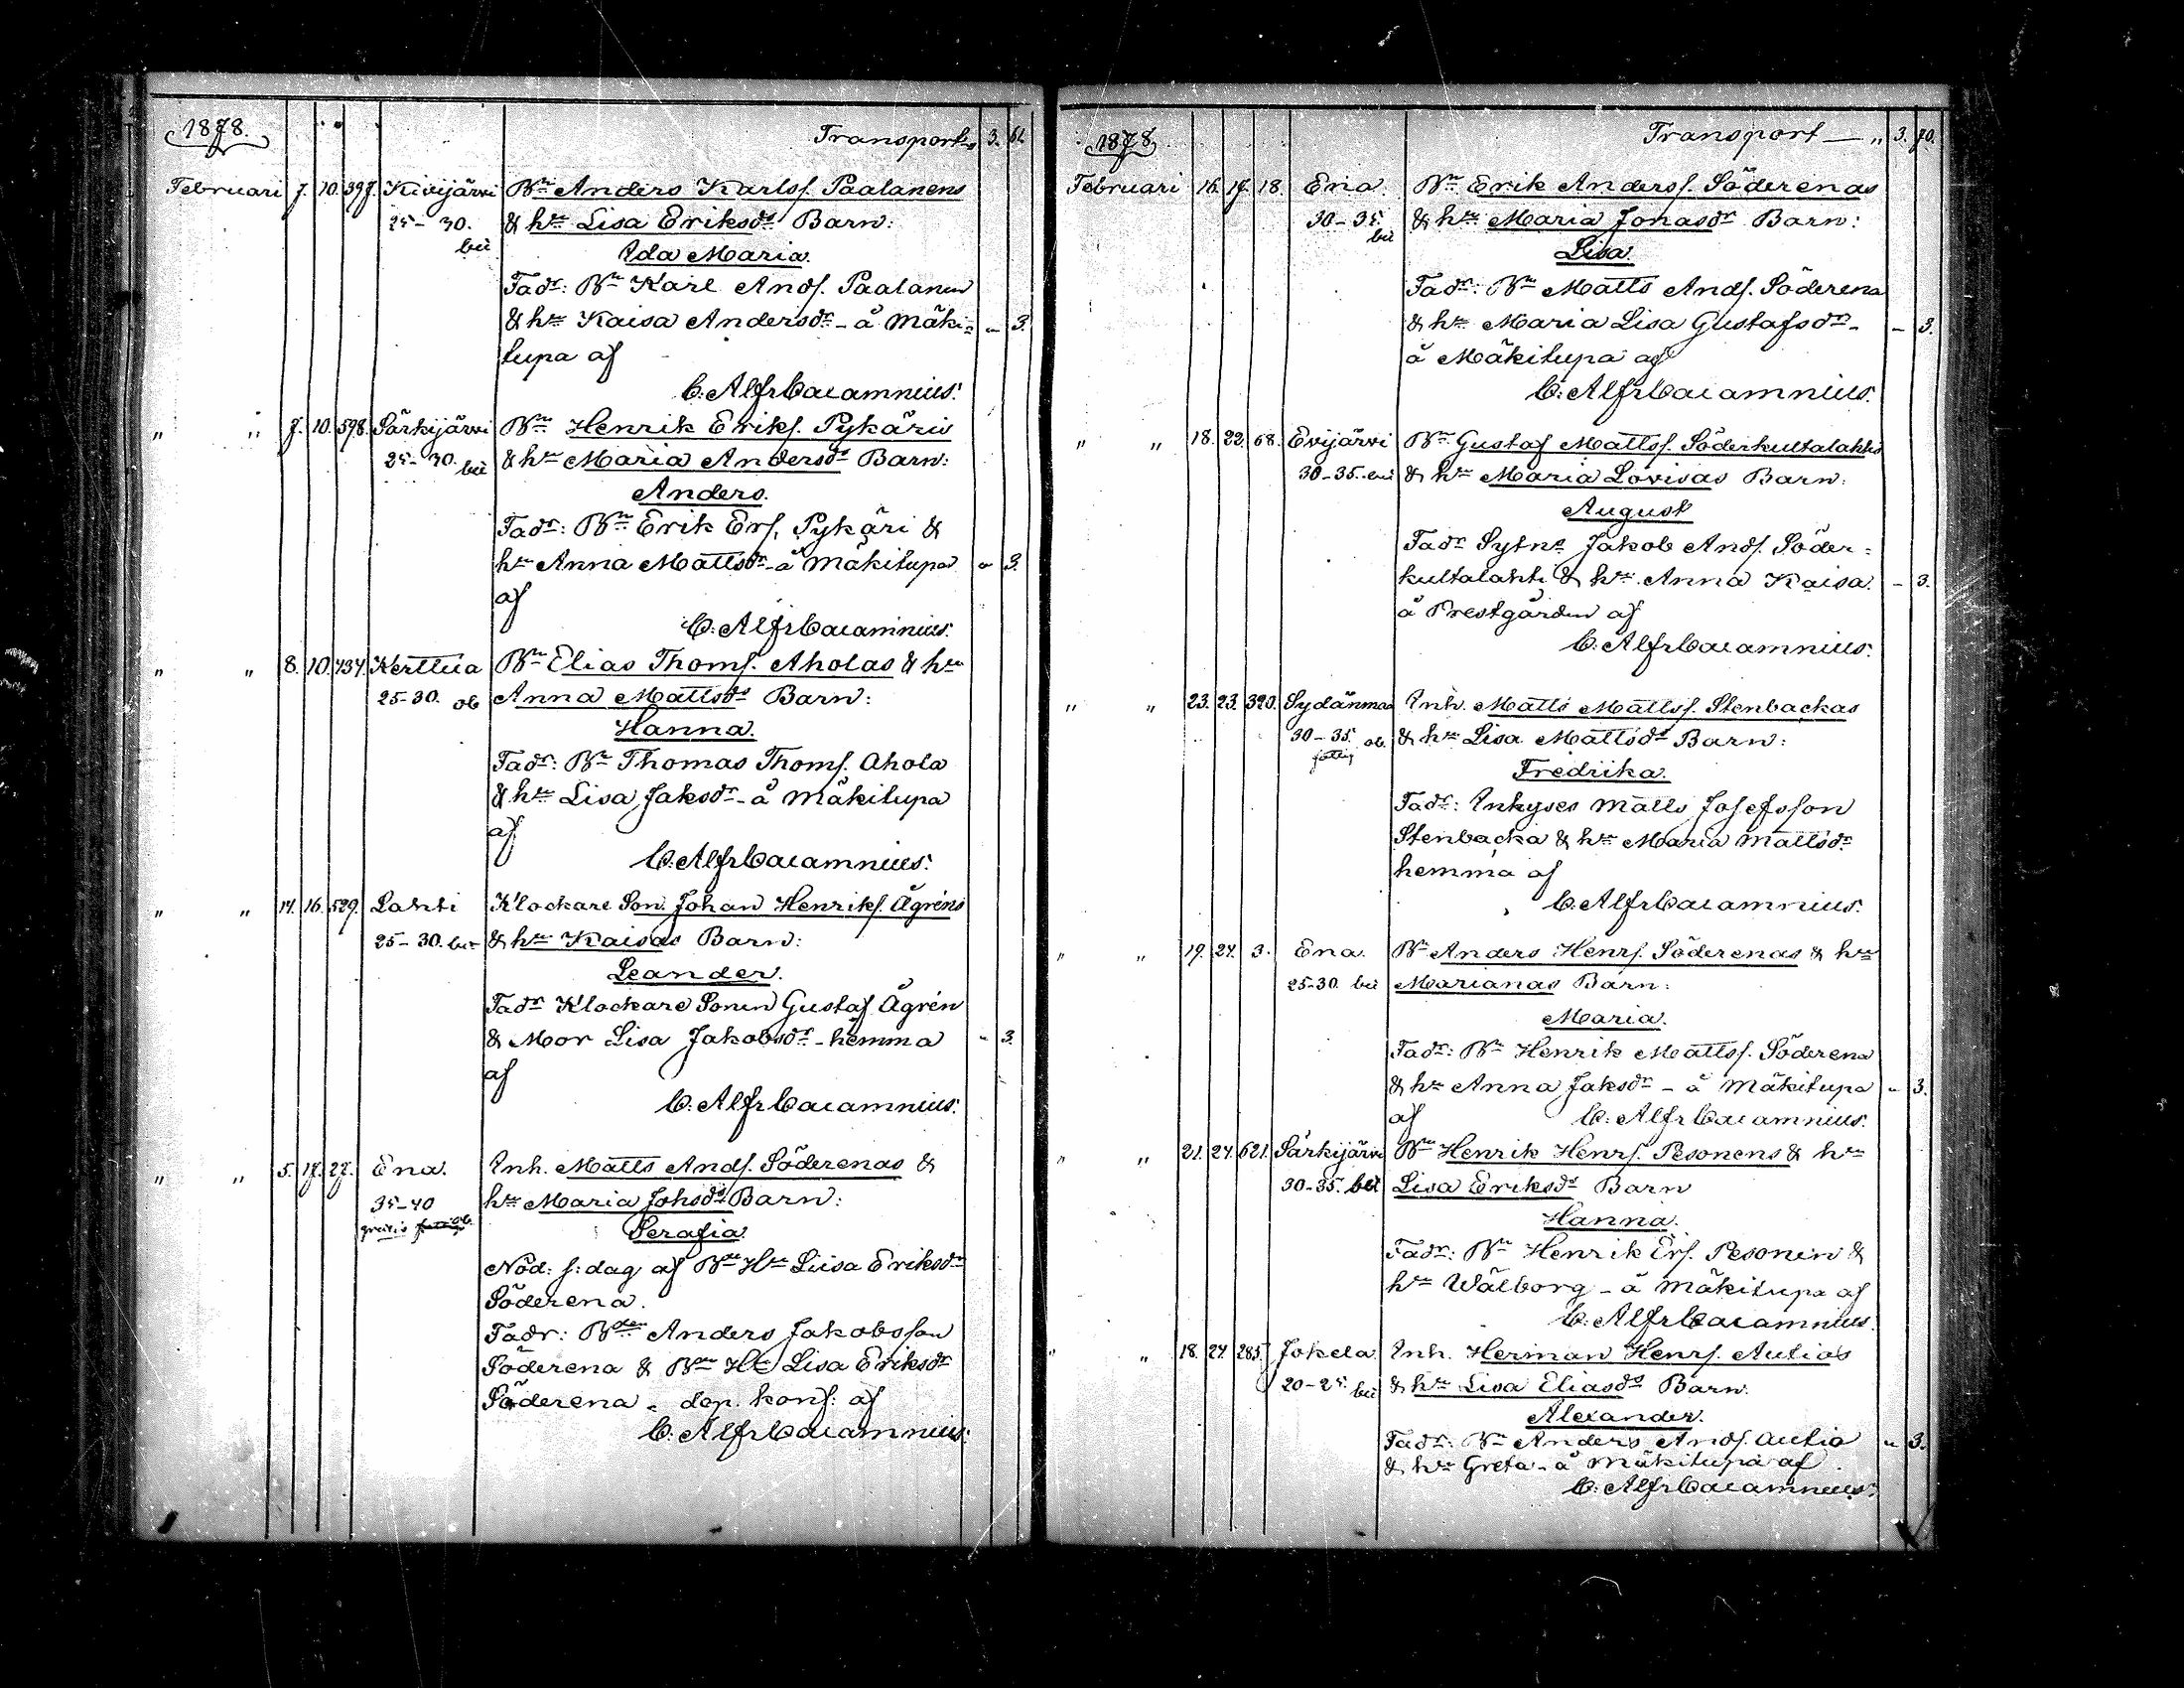 1878. Transport 3. 61.
Februari 7. 10. 397. Kivijärvi Bn Anders Karlss. Paalanens
25-30. & hu Lisa Eriksds Barn:
bei Ida Maria.
Fadr: Bn Karl Ands. Paalanen
& hu Kaisa Andersdr - å Mäki= - 3.
tupa af
C: Alfr Cajamnius.
" " 7. 10. 598. Särkijärvi Bn Henrik Eriks. Pykäris
25-30. bei & hu Maria Andersds Barn:
Anders.
Fadr: Bn Erik Ers. Pykäri &
hu Anna Mattsdr - å Mäkitupa - 3.
af
C: Alfr Cajamnius.
" " 8. 10. 434. Kerttua Bn Elias Thoms. Aholas & hu
25-30. ob Anna Mattsds Barn:
Hanna.
Fadr: Bn Thomas Thoms. Ahola
& hu Lisa Jaksdr - å Mäkitupa
af
C: Alfr Cajamnius.
" " 14. 16. 529. Lahti Klockare Son. Johan Henriks. Ågréns
25-30. bei & hu Kaisas Barn:
Leander.
Fadr Klockare Sonen Gustaf Ågrén
& Mor Lisa Jakobsdr - hemma - 3.
af
C: Alfr Cajamnius.
" " 5. 17. 27. Ena. Inh. Matts Ands. Söderenas &
35-40 hu Maria Johsds Barn:
gratis Serafia.
Nöd: s: dag af Bn Hu Liisa Eriksdr
Söderena.
Fadr: Bden Anders Jakobsson
Söderena & Bn Hu Lisa Eriksdr
Söderena - dop. konf. af
C: Alfr Cajamnius.
1878. Transport — " 3. 70.
Februari 16. 17. 18. Ena. Bn Erik Anderss. Söderenas
30-35. bei & hu Maria Jonasdr Barn:
Lisa.
Fadr: Bn Matts Ands. Söderena
& hu Maria Lisa Gustafsdr - - 3.
å Mäkitupa af
C: Alfr Cajamnius.
" " 18. 22. 68. Evijärvi Bn Gustaf Mattss. Söderkultalahtis
30-35. bei & hu Maria Lovisas Barn:
August
Fadr Sytns Jakob Ands. Söder=
kultalahti & hu Anna Kaisa. - 3.
å Prestgården af
C: Alfr Cajamnius.
" " 23. 23. 323. Sydänmaa Inh. Matts Mattss. Stenbackas
30-35. ob. & hu Lisa Mattsds Barn:
fattig Fredrika.
Fadr: Inhyses Matts Josefsson
Stenbacka & hu Maria Mattsdr
hemma af
C: Alfr Cajamnius.
" " 19. 24. 3. Ena. Bn Anders Henrs. Söderenas & hu
25-30. bei Marianas Barn:
Maria.
Fadr: Bn Henrik Mattss. Söderena
& hu Anna Jaksdr - å Mäkitupa - 3.
af C: Alfr Cajamnius.
" " 21. 24. 621. Särkijärvi Bn Henrik Henrs. Pesonens & hu
30-35. bei Lisa Eriksds Barn
Hanna.
Fadr: Bn Henrik Ers. Pesonen &
hu Wälborg - å Mäkitupa af
C: Alfr Cajamnius.
" " 18. 24. 285. Jokela Inh. Herman Henrs. Autios
20-25. bei & hu Lisa Eliasds Barn.
Alexander.
Fadr: Bn Anders Ands. Autio - 3.
& hu Greta - å Mäkitupa af
C: Alfr Cajamnius.